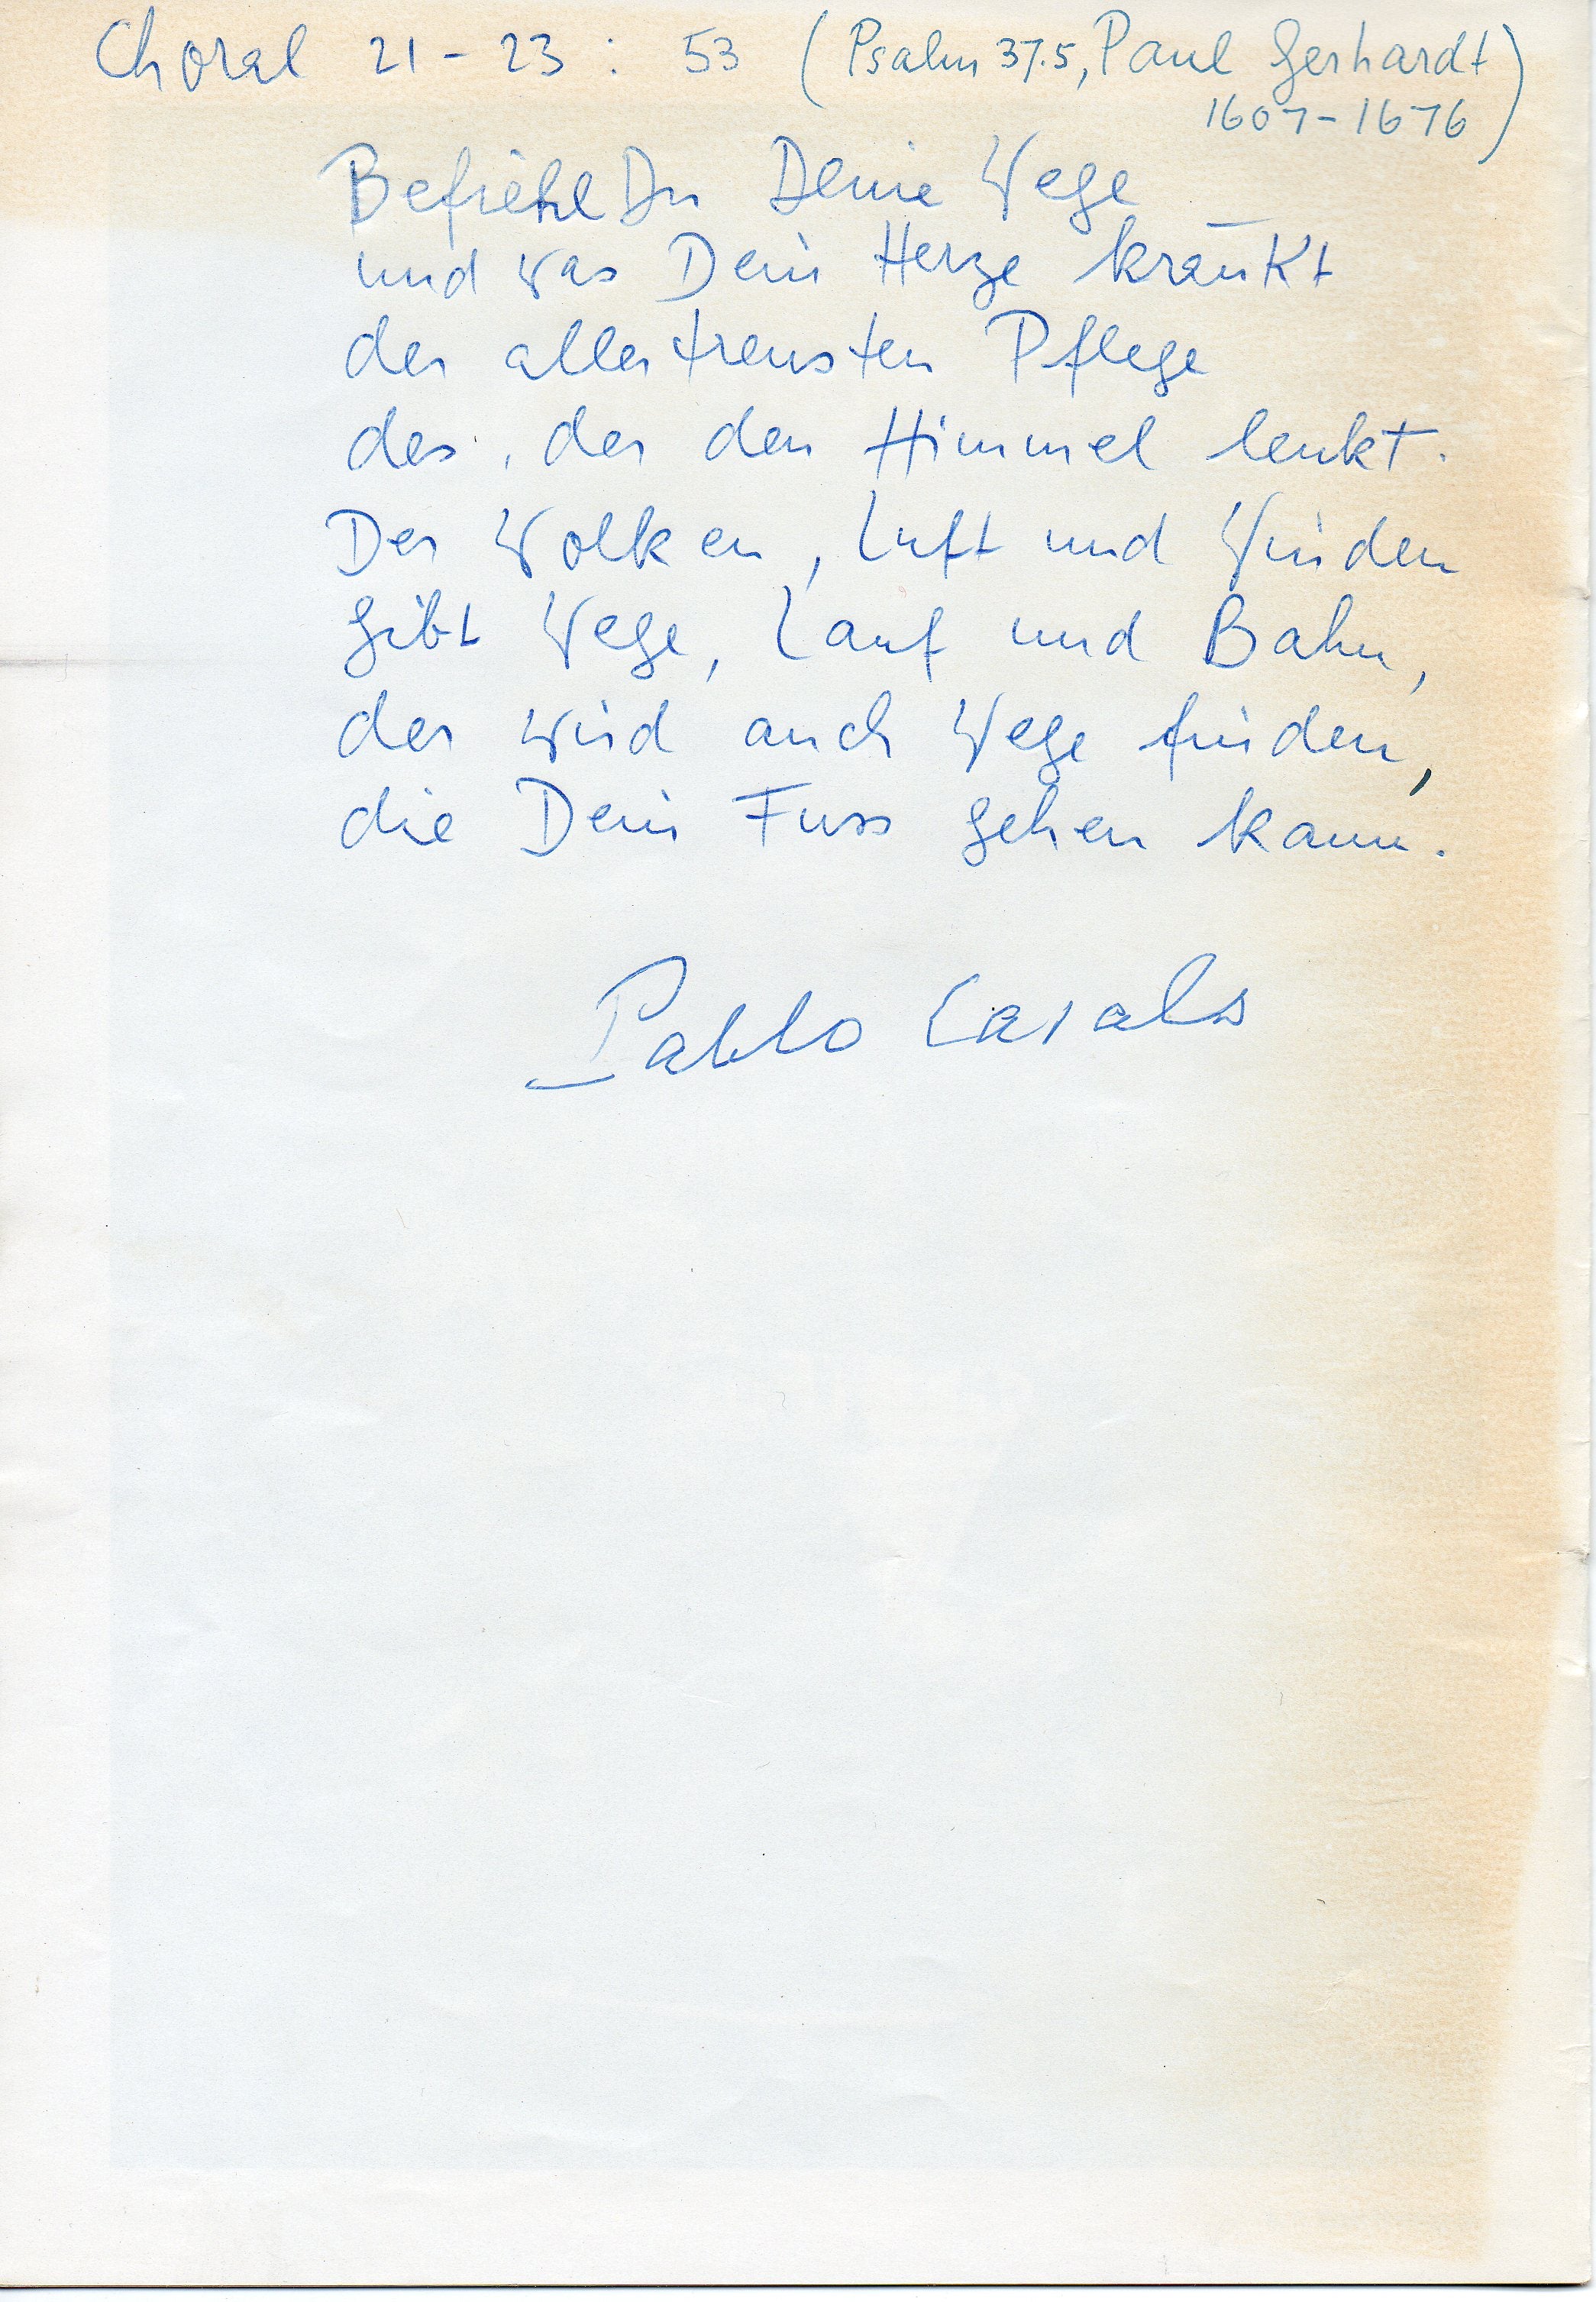 Choral 21 - 23 : 53 (Psalm 37.5, Paul Gerhardt
1607 - 1676)
Befiehl Du Deine Wege
und was Dein Herze kränkt
der allertreusten Pflege
des, der den Himmel lenkt.
Der Wolken, Luft und Winden
gibt Wege, Lauf und Bahn,
der wird auch Wege finden,
die Dein Fuss gehen kann.
Pablo Casals